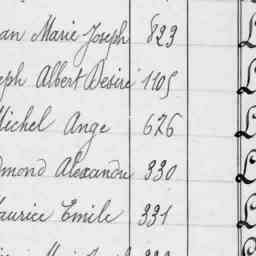 an Marie Joseph 823
eph Albert Desiré 1105
Michel Ange 676
dmond Alexandre 330
aurice Emile 331